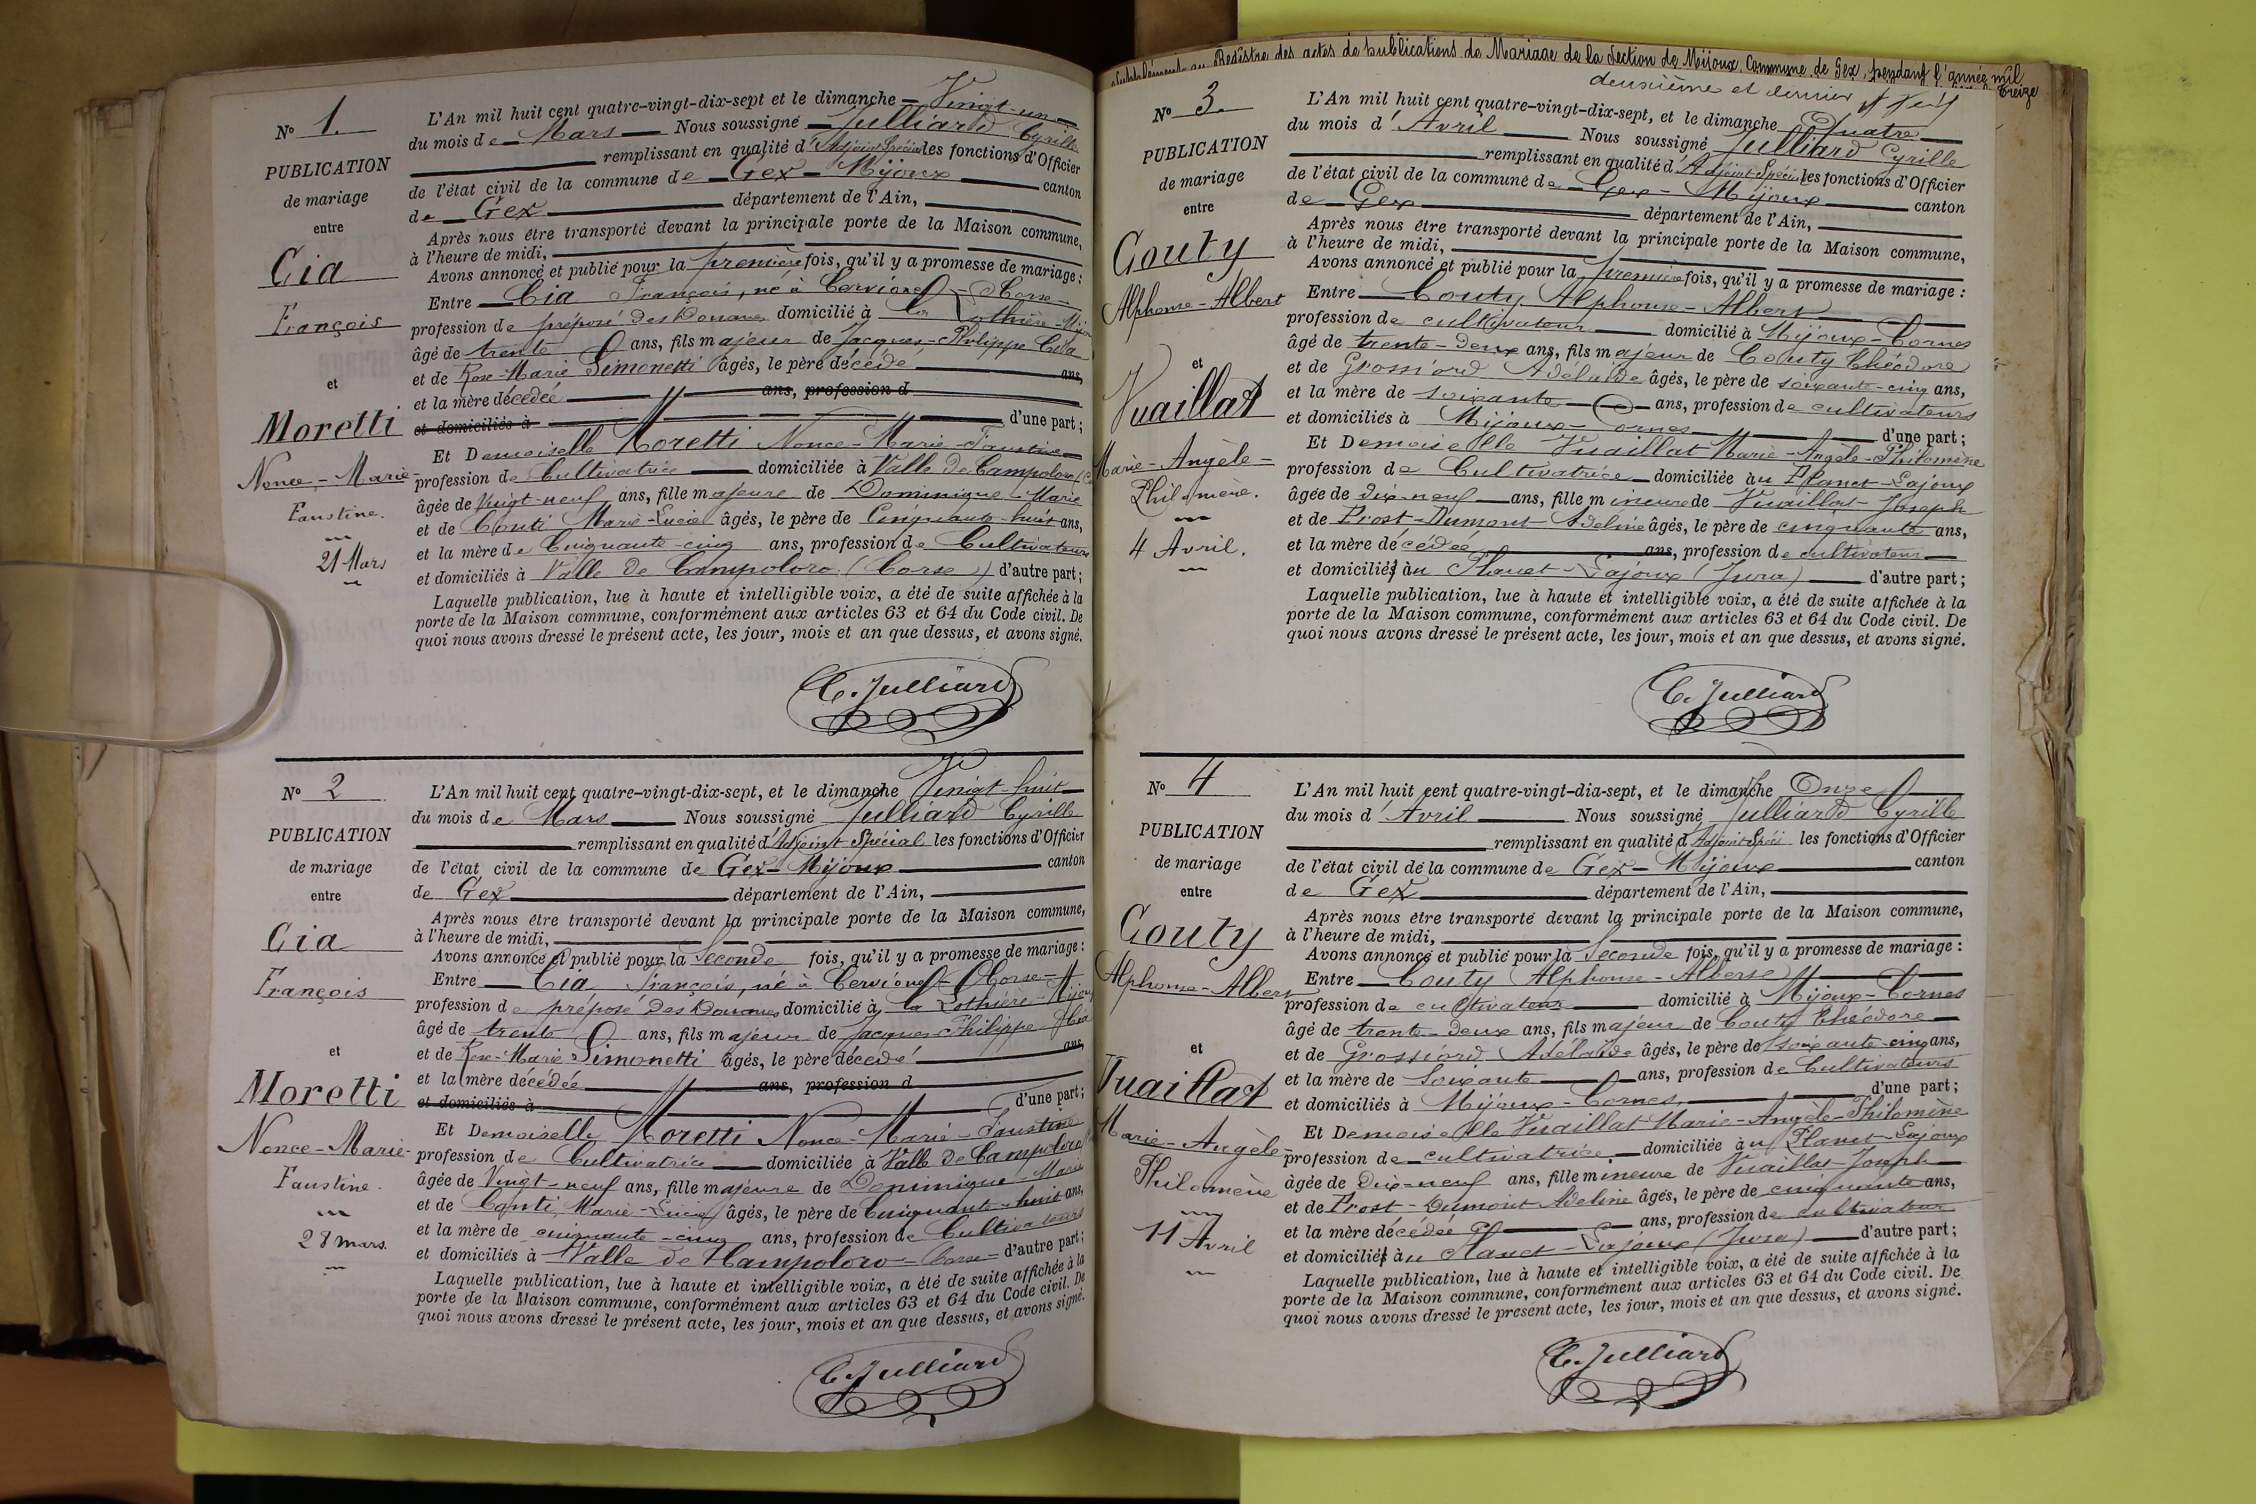 N° 1.
PUBLICATION
de mariage
entre
Cia
François
et
Moretti
Nonce-Marie-
Faustine.
21 Mars
L'An mil huit cent quatre-vingt-dix-sept et le dimanche Vingt-un
du mois de Mars Nous soussigné Julliard Cyrille
remplissant en qualité d'Adjoint Spécial les fonctions d'Officier
de l'état civil de la commune de Gex-Mijoux canton
de Gex département de l'Ain,
Après nous être transporté devant la principale porte de la Maison commune,
à l'heure de midi,
Avons annoncé et publié pour la première fois, qu'il y a promesse de mariage :
Entre Cia François, né à Cervione - Corse -
profession de préposé des Douanes domicilié à la
âgé de trente ans, fils majeur de Jacques-Philippe Cia
et de Rose-Marie Simonetti âgés, le père décédé ans,
et la mère décédée ans, profession d
et domiciliés à d'une part ;
Et Demoiselle Moretti Nonce-Marie-Faustine
profession de Cultivatrice domiciliée à Valle de Campoloro
âgée de Vingt-neuf ans, fille majeure de Dominique-Marie
et de Conti Marie-Lucie âgés, le père de Cinquante-huit ans,
et la mère de Cinquante-cinq ans, profession de Cultivateurs
et domiciliés à Valle de Campoloro (Corse) d'autre part ;
Laquelle publication, lue à haute et intelligible voix, a été de suite affichée à la
porte de la Maison commune, conformément aux articles 63 et 64 du Code civil. De
quoi nous avons dressé le présent acte, les jour, mois et an que dessus, et avons signé.
C. Julliard
N° 2
PUBLICATION
de mariage
entre
Cia
François
et
Moretti
Nonce-Marie-
Faustine.
28 mars.
L'An mil huit cent quatre-vingt-dix-sept, et le dimanche Vingt-huit
du mois de Mars Nous soussigné Julliard Cyrille
remplissant en qualité d'Adjoint Spécial les fonctions d'Officier
de l'état civil de la commune de Gex-Mijoux canton
de Gex département de l'Ain,
Après nous être transporté devant la principale porte de la Maison commune,
à l'heure de midi,
Avons annoncé et publié pour la Seconde fois, qu'il y a promesse de mariage :
Entre Cia François, né à Cervione - Corse -
profession de préposé des Douanes domicilié à la
âgé de trente ans, fils majeur de Jacques-Philippe Cia
et de Rose-Marie Simonetti âgés, le père décédé ans,
et la mère décédée ans, profession d
et domiciliés à d'une part ;
Et Demoiselle Moretti Nonce-Marie-Faustine
profession de Cultivatrice domiciliée à Valle de Campoloro
âgée de Vingt-neuf ans, fille majeure de Dominique Marie
et de Conti Marie-Lucie âgés, le père de Cinquante-huit ans,
et la mère de cinquante-cinq ans, profession de Cultivateurs
et domiciliés à Valle de Campoloro - Corse - d'autre part ;
Laquelle publication, lue à haute et intelligible voix, a été de suite affichée à la
porte de la Maison commune, conformément aux articles 63 et 64 du Code civil. De
quoi nous avons dressé le présent acte, les jour, mois et an que dessus, et avons signé.
C. Julliard
Supplément au Registre des actes de publications de Mariage de la Section de Mijoux, Commune de Gex, pendant l'année mil
treize
deuxième et dernier
N° 3
PUBLICATION
de mariage
entre
Couty
Alphonse-Albert
et
Vuaillat
Marie-Angèle-
Philomène.
4 Avril.
L'An mil huit cent quatre-vingt-dix-sept, et le dimanche Quatre
du mois d'Avril Nous soussigné Julliard Cyrille
remplissant en qualité d'Adjoint Spécial les fonctions d'Officier
de l'état civil de la commune de Gex-Mijoux canton
de Gex département de l'Ain,
Après nous être transporté devant la principale porte de la Maison commune,
à l'heure de midi,
Avons annoncé et publié pour la première fois, qu'il y a promesse de mariage :
Entre Couty Alphonse-Albert
profession de cultivateur domicilié à Mijoux-Cornes
âgé de trente-deux ans, fils majeur de Couty Théodore
et de Grossiord Adélaïde âgés, le père de soixante-cinq ans,
et la mère de soixante ans, profession de cultivateurs
et domiciliés à Mijoux-Cornes d'une part ;
Et Demoiselle Vuaillat Marie-Angèle-Philomène
profession de Cultivatrice domiciliée au Planet-Lajoux
âgée de dix-neuf ans, fille mineure de Vuaillat Joseph
et de Prost-Dumont Adeline âgés, le père de cinquante ans,
et la mère décédée ans, profession de cultivateur
et domiciliés au Planet-Lajoux (Jura) d'autre part ;
Laquelle publication, lue à haute et intelligible voix, a été de suite affichée à la
porte de la Maison commune, conformément aux articles 63 et 64 du Code civil. De
quoi nous avons dressé le présent acte, les jour, mois et an que dessus, et avons signé.
C. Julliard
N° 4
PUBLICATION
de mariage
entre
Couty
Alphonse-Albert
et
Vuaillat
Marie-Angèle-
Philomène
11 Avril
L'An mil huit cent quatre-vingt-dia-sept, et le dimanche Onze
du mois d'Avril Nous soussigné Julliard Cyrille
remplissant en qualité d'Adjoint Spéci les fonctions d'Officier
de l'état civil de la commune de Gex-Mijoux canton
de Gex département de l'Ain,
Après nous être transporté devant la principale porte de la Maison commune,
à l'heure de midi,
Avons annoncé et publié pour la Seconde fois, qu'il y a promesse de mariage :
Entre Couty Alphonse-Albert
profession de cultivateur domicilié à Mijoux-Cornes
âgé de trente-deux ans, fils majeur de Couty Théodore
et de Grossiord Adélaïde âgés, le père de soixante-cinq ans,
et la mère de Soixante ans, profession de Cultivateurs
et domiciliés à Mijoux-Cornes d'une part ;
Et Demoiselle Vuaillat Marie-Angèle-Philomène
profession de cultivatrice domiciliée au Planet-Lajoux
âgée de Dix-neuf ans, fille mineure de Vuaillat Joseph
et de Prost-Dumont Adeline âgés, le père de cinquante ans,
et la mère décédée ans, profession de cultivateur
et domiciliés au Planet-Lajoux (Jura) d'autre part ;
Laquelle publication, lue à haute et intelligible voix, a été de suite affichée à la
porte de la Maison commune, conformément aux articles 63 et 64 du Code civil. De
quoi nous avons dressé le présent acte, les jour, mois et an que dessus, et avons signé.
C. Julliard